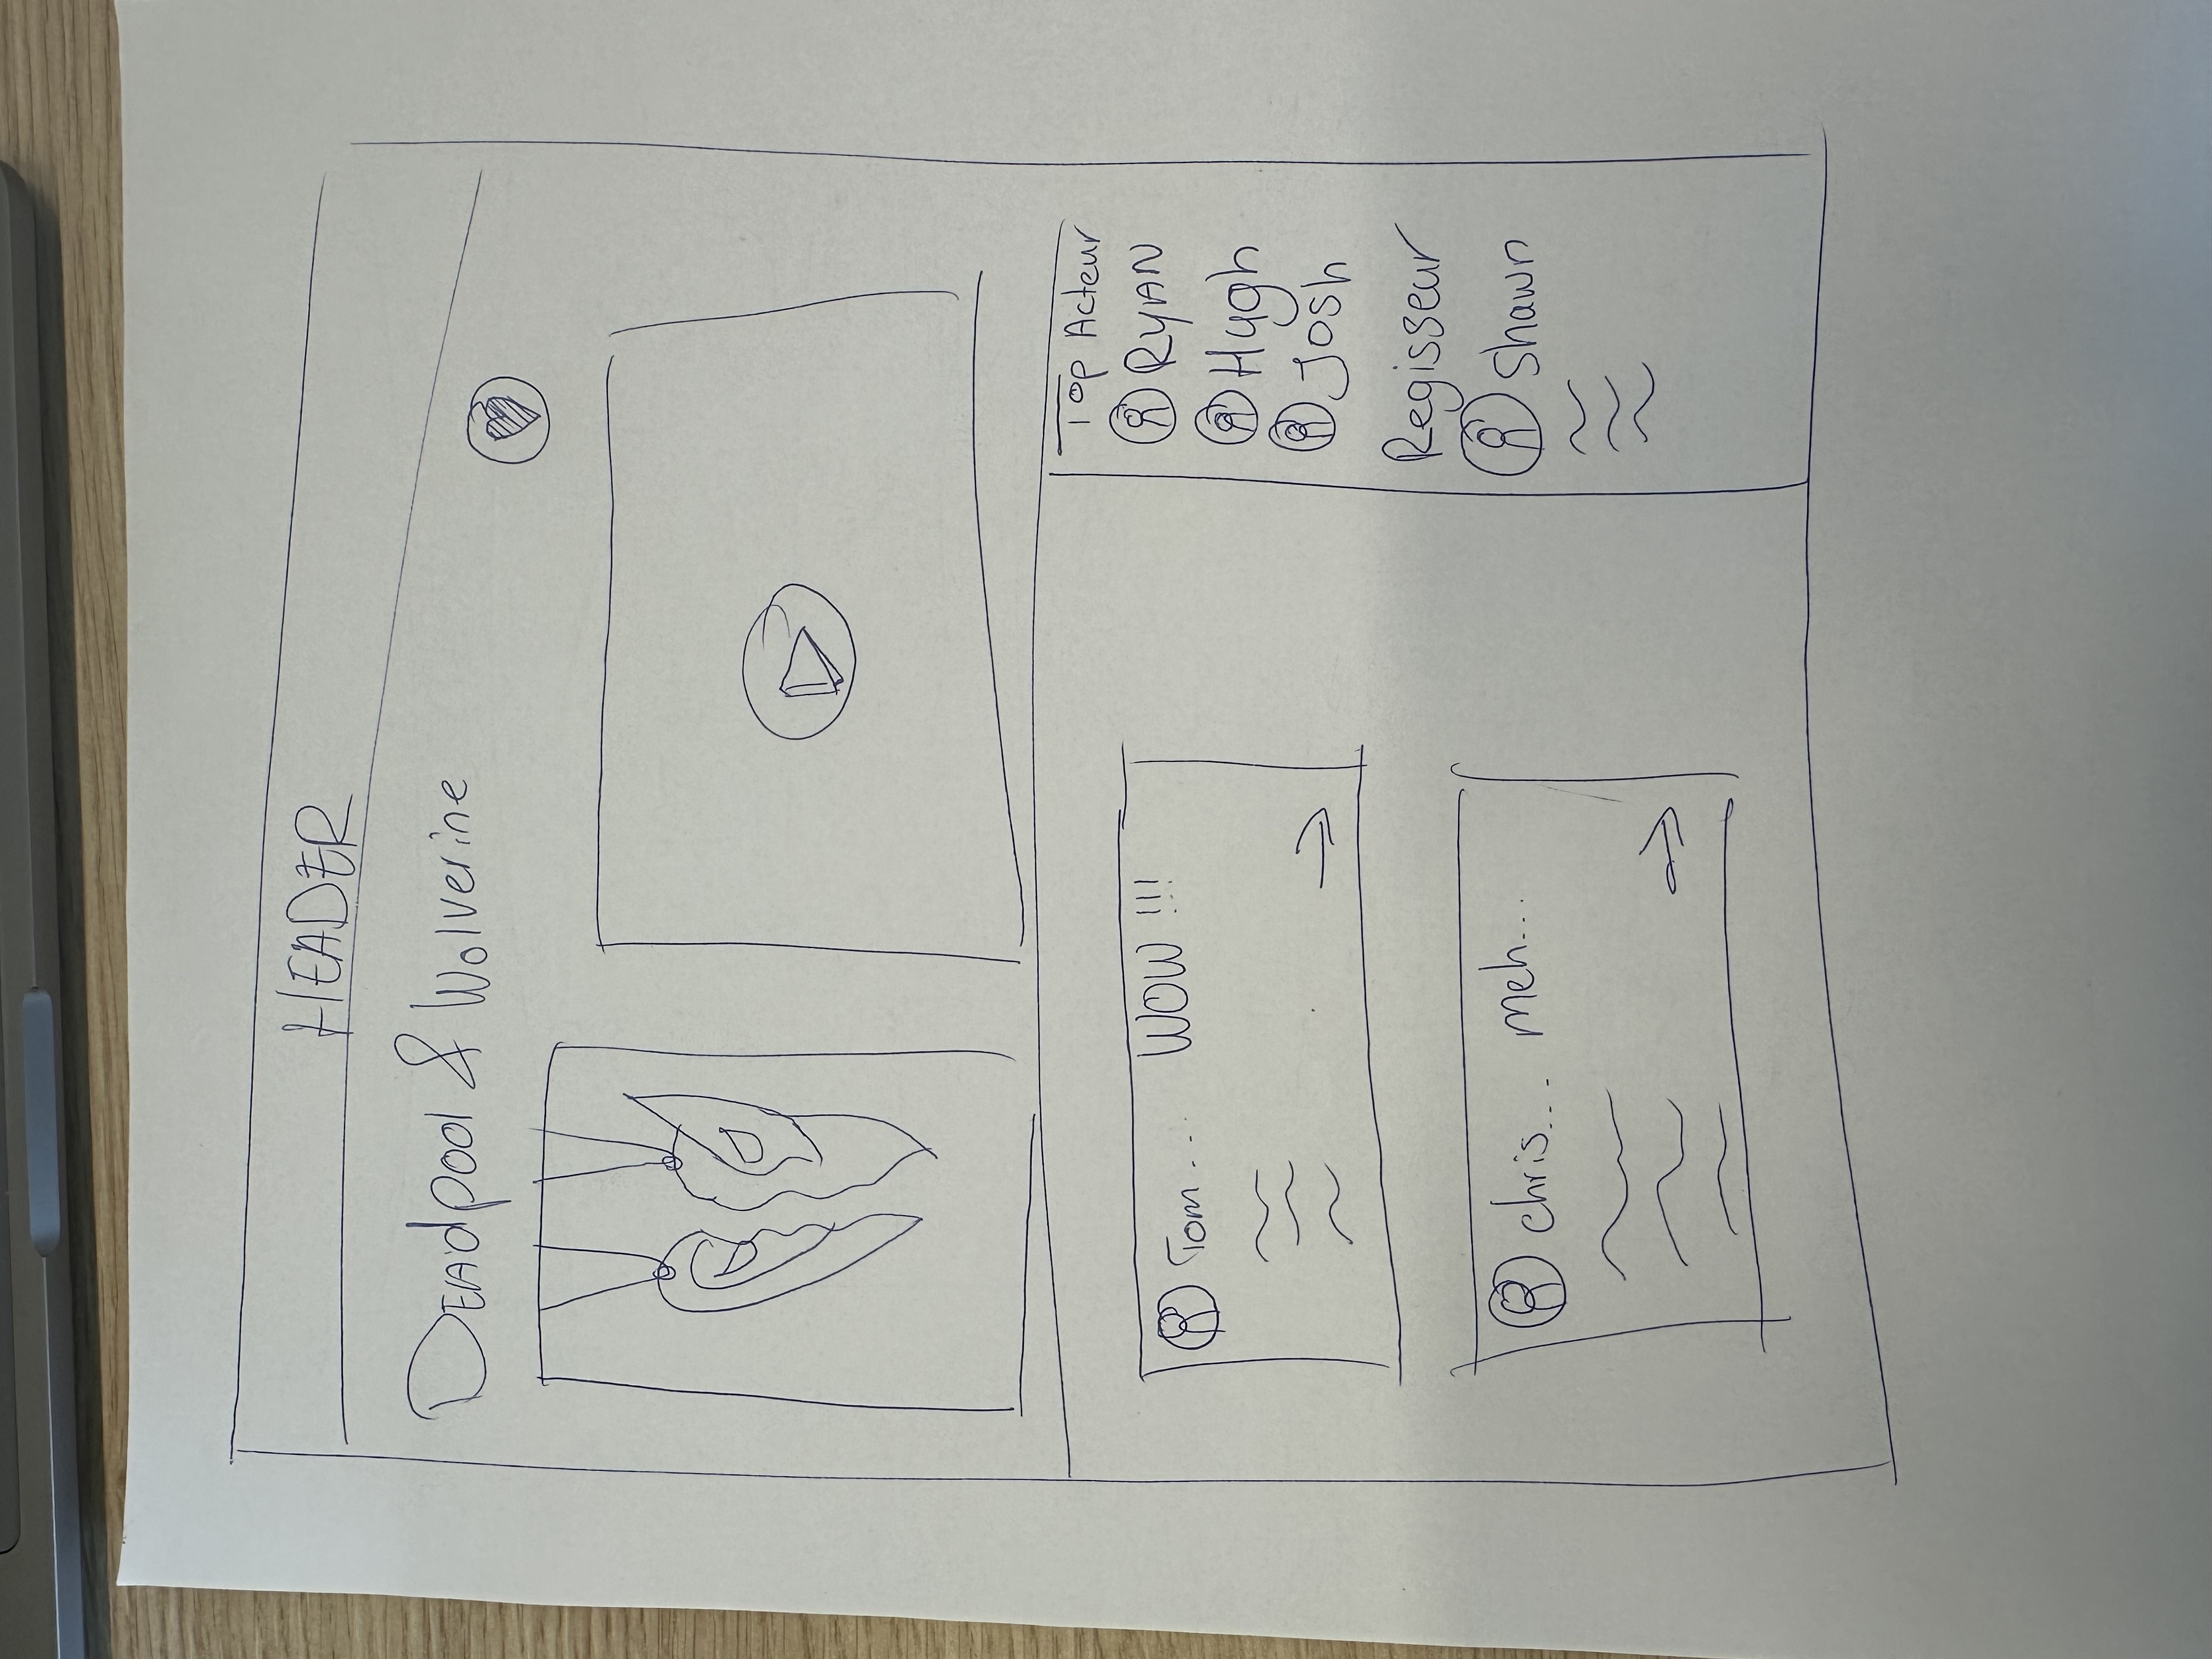 HEADER
Deadpool & Wolverine
Tom... WOW !!!
chris... meh...
Top Acteur
RYAN
Hugh
Josh
Regisseur
Shawn